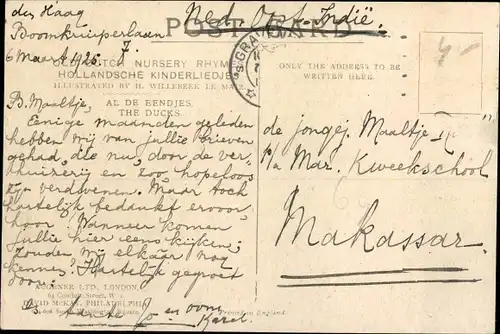 den Haag
Boomkruiperlaan 7.
6 Maart 1926.
Ned. Oost-Indië.
POST CARD
OLD DUTCH NURSERY RHYMES
HOLLANDSCHE KINDERLIEDJES
ILLUSTRATED BY H. WILLEBEEK LE MAIR
AL DE EENDJES.
THE DUCKS.
ONLY THE ADDRESS TO BE
WRITTEN HERE.
'S-GRAVENHAGE
4-
B. Maaltje,
Eenige maanden geleden
hebben wij van jullie brieven
gehad, die nu, door de ver-
huizerij en zoo hopeloos
zijn verdwenen. Maar toch
hartelijk bedankt ervoor
hoor. Wanneer komen
jullie hier eens kijken;
zouden wij elkaar nog
kennen? Hartelijk gegroet
door:
tante Jo en oom
Karel.
de jongej. Maaltje
p/a Mar. Kweekschool
Makassar.
AUGENER LTD, LONDON,
DAVID McKAY, PHILADELPHIA
Printed in England